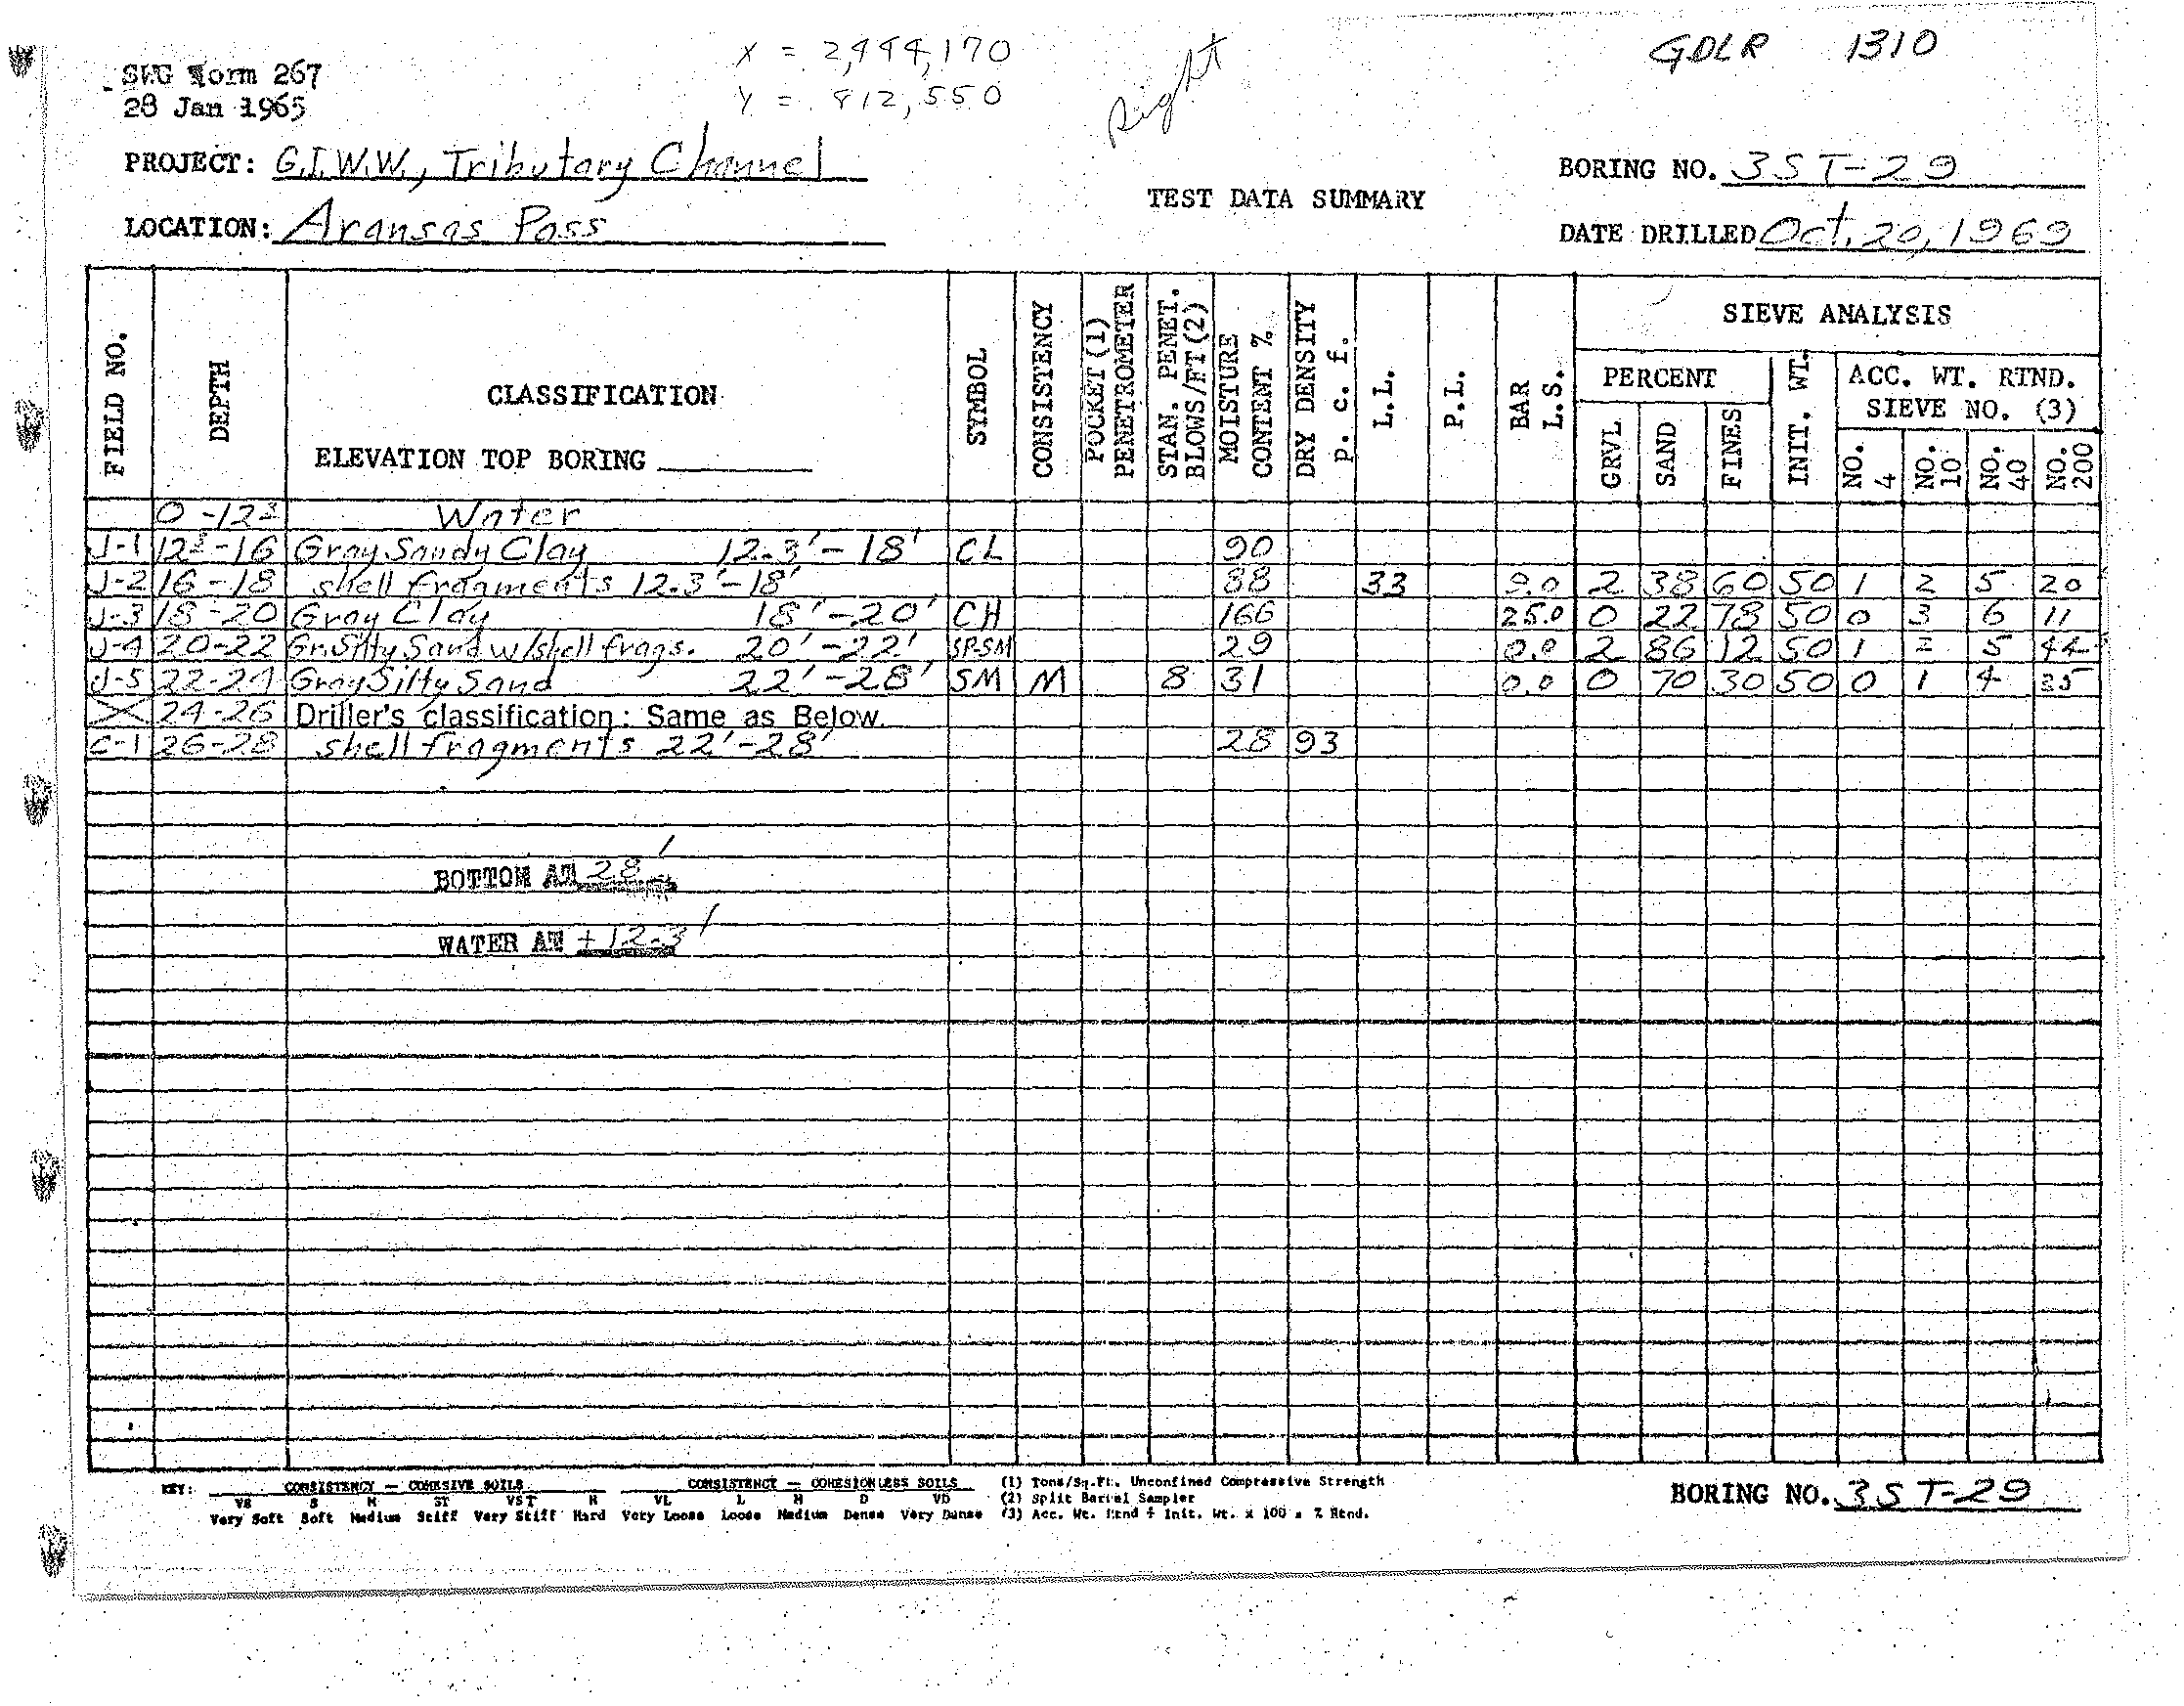 X = 2,444,170
GDLR 1310
SWG Form 267
Y = 812,550
Right
28 Jan 1965
PROJECT: G.I.W.W., Tributary Channel
BORING NO. 3ST-29
TEST DATA SUMMARY
LOCATION: Aransas Pass
DATE DRILLED Oct. 20, 1969
FIELD NO.
DEPTH
CLASSIFICATION
ELEVATION TOP BORING
SYMBOL
CONSISTENCY
POCKET (1)
PENETROMETER
STAN. PENET.
BLOWS/FT (2)
MOISTURE
CONTENT %
DRY DENSITY
P. c. f.
L.L.
P.L.
BAR
L.S.
SIEVE ANALYSIS
PERCENT
GRVL
SAND
FINES
INIT. WT.
ACC. WT. RTND.
SIEVE NO. (3)
NO. 4
NO. 10
NO. 40
NO. 200
0-12.3 Water
J-1 12.3-16 Gray Sandy Clay 12.3'-18' CL 90
J-2 16-18 shell fragments 12.3'-18' 88 33 9.0 2 38 60 50 1 2 5 20
J-3 18-20 Gray Clay 18'-20' CH 166 25.0 0 22 78 50 0 3 6 11
J-4 20-22 Gr. Silty Sand w/shell frags. 20'-22' SP-SM 29 0.0 2 86 12 50 1 2 5 44
J-5 22-24 Gray Silty Sand 22'-28' SM M 8 31 0.0 0 70 30 50 0 1 4 35
X 24-26 Driller's classification: Same as Below.
C-1 26-28 shell fragments 22'-28' 28 93
BOTTOM AT 28'
WATER AT +12.3'
KEY: CONSISTENCY — COHESIVE SOILS CONSISTENCY — COHESIONLESS SOILS (1) Tons/Sq.Ft. Unconfined Compressive Strength
VS S M ST VST H VL L M D VD (2) Split Barrel Sampler
Very Soft Soft Medium Stiff Very Stiff Hard Very Loose Loose Medium Dense Very Dense (3) Acc. Wt. Rtnd ÷ Init. Wt. x 100 = % Rtnd.
BORING NO. 3ST-29